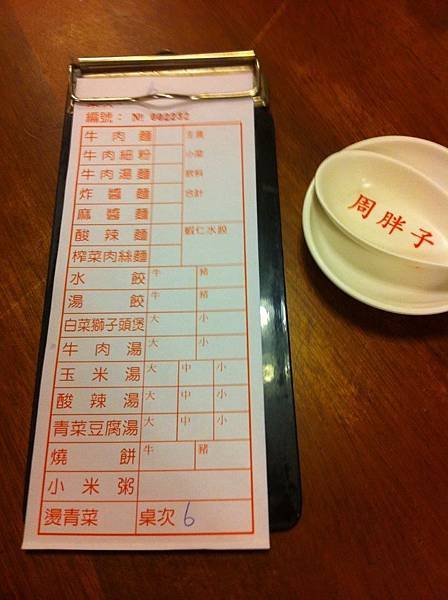 編號： № 002232
牛肉麵
牛肉細粉 小菜
牛肉湯麵 飲料
炸醬麵 合計
麻醬麵
酸辣麵 蝦仁水餃
榨菜肉絲麵
水餃 牛 豬
湯餃 牛 豬
白菜獅子頭煲 大 小
牛肉湯 大 小
玉米湯 大 中 小
酸辣湯 大 中 小
青菜豆腐湯 大 中 小
燒餅 牛 豬
小米粥
燙青菜 桌次 6
周胖子